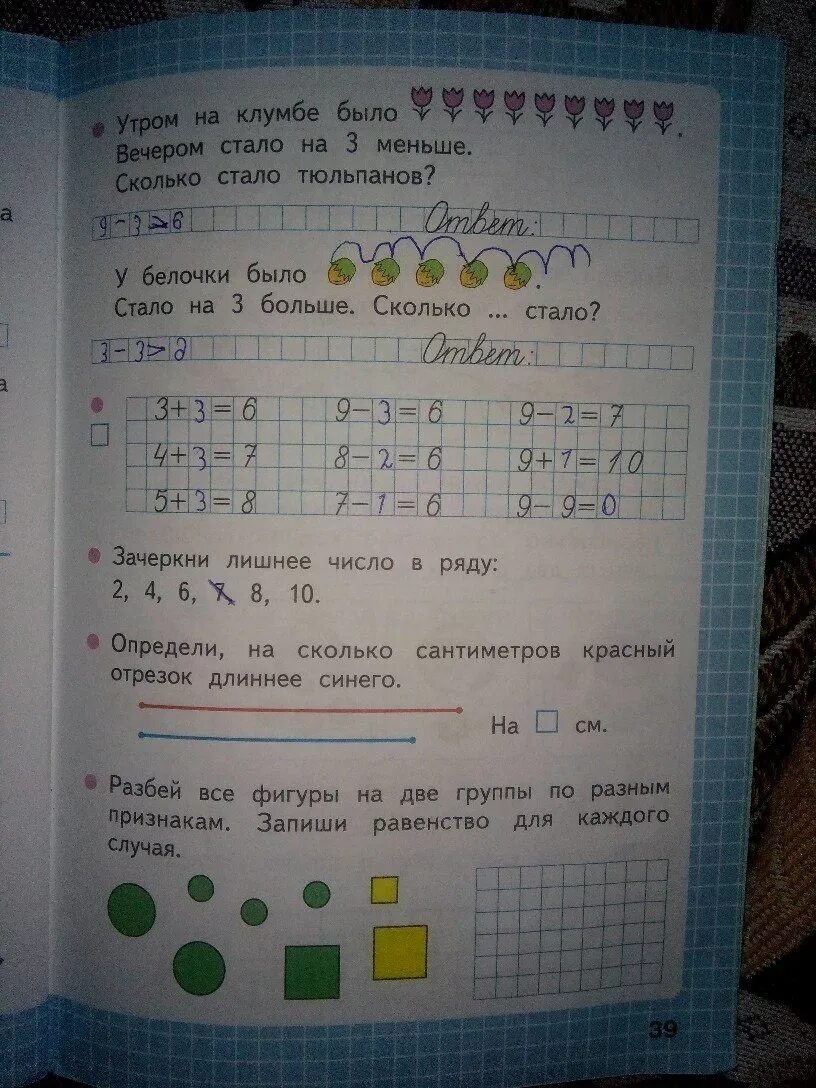 Утром на клумбе было .
Вечером стало на 3 меньше.
Сколько стало тюльпанов?
9-3>6 Ответ:
У белочки было .
Стало на 3 больше. Сколько ... стало?
3-3>2 Ответ:
3+3=6 9-3=6 9-2=7
4+3=7 8-2=6 9+1=10
5+3=8 7-1=6 9-9=0
Зачеркни лишнее число в ряду:
2, 4, 6, 7, 8, 10.
Определи, на сколько сантиметров красный
отрезок длиннее синего.
На см.
Разбей все фигуры на две группы по разным
признакам. Запиши равенство для каждого
случая.
39
а
а